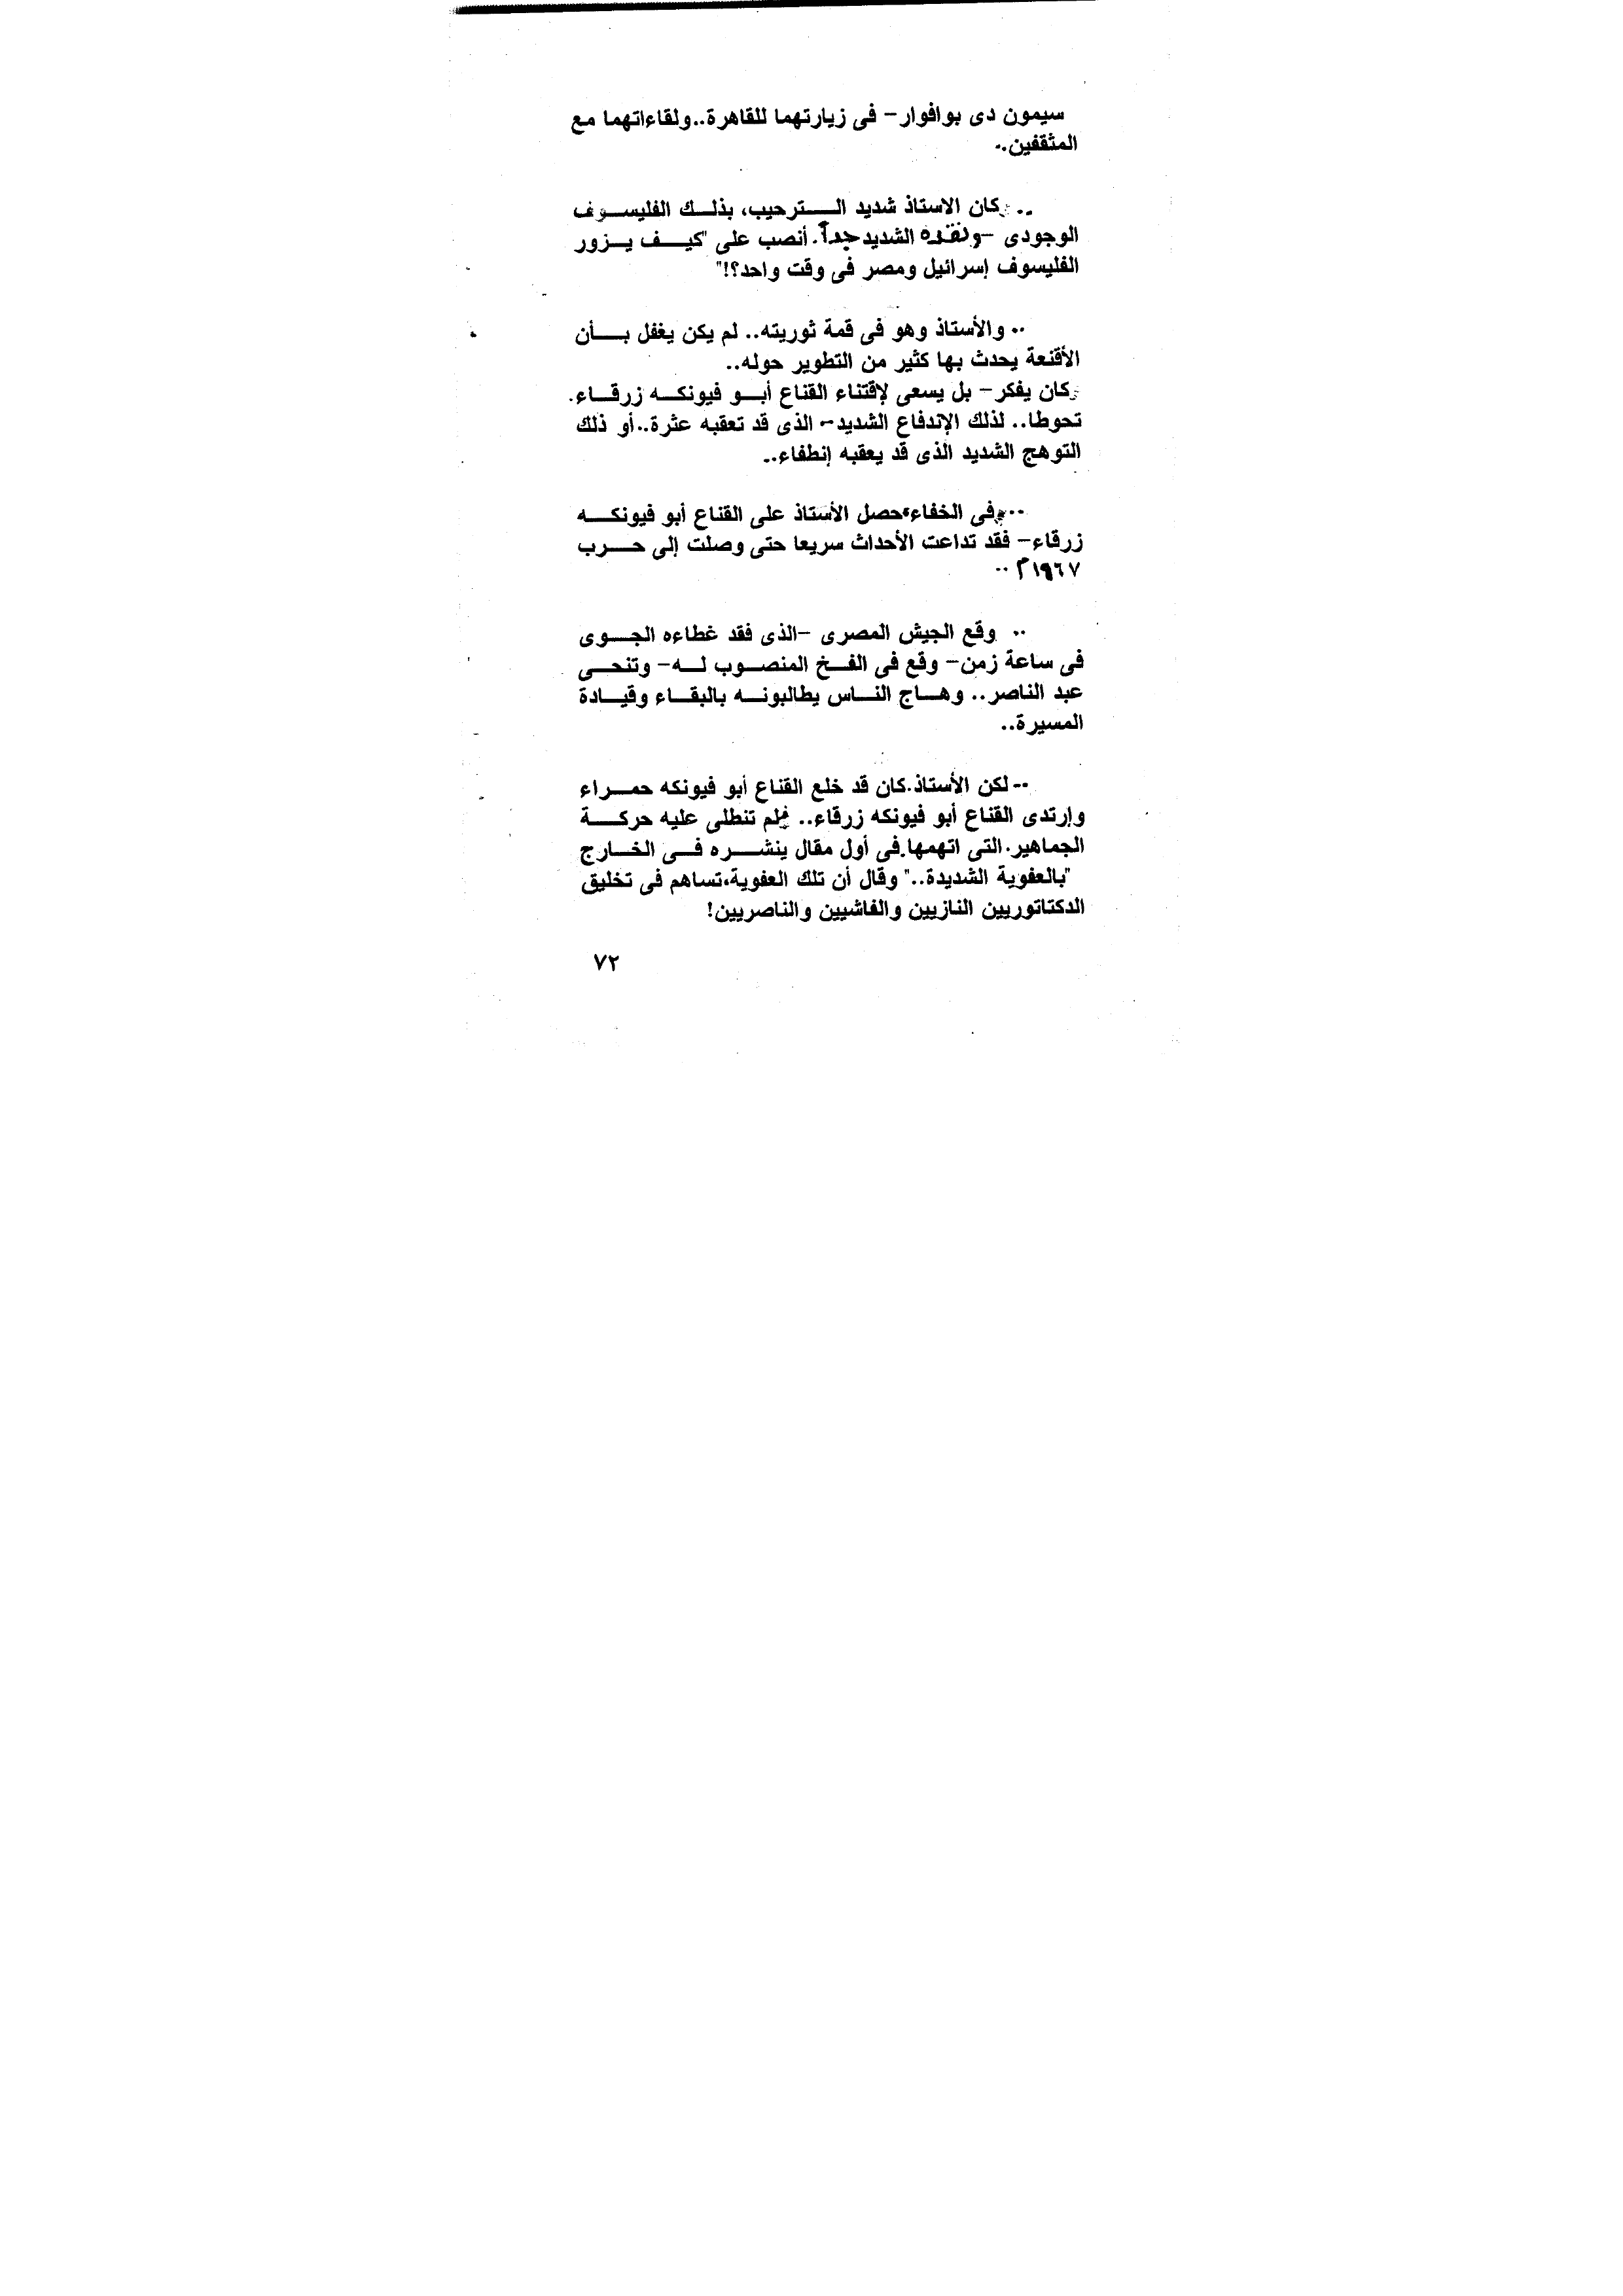 سيمون دى بوافوار- فى زيارتهما للقاهرة..ولقاءاتهما مع
المثقفين..
.. كان الاستاذ شديد الـــترحيب، بذلــك الفليســوف
الوجودى -ونقده الشديد جداً. أنصب على "كيـــف يــزور
الفليسوف إسرائيل ومصر فى وقت واحد؟!"
.. والأستاذ وهو فى قمة ثوريته.. لم يكن يغفل بـــأن
الأقنعة يحدث بها كثير من التطوير حوله..
كان يفكر- بل يسعى لإقتناء القناع أبــو فيونكــه زرقــاء.
تحوطا.. لذلك الإندفاع الشديد- الذى قد تعقبه عثرة..أو ذلك
التوهج الشديد الذى قد يعقبه إنطفاء..
.. فى الخفاء حصل الأستاذ على القناع أبو فيونكـــه
زرقاء- فقد تداعت الأحداث سريعا حتى وصلت إلى حـــرب
١٩٦٧م ..
.. وقع الجيش المصرى -الذى فقد غطاءه الجــوى
فى ساعة زمن- وقع فى الفــخ المنصــوب لــه- وتنحــى
عبد الناصر.. وهــاج النــاس يطالبونــه بالبقــاء وقيــادة
المسيرة..
.. لكن الأستاذ.كان قد خلع القناع أبو فيونكه حمــراء
وإرتدى القناع أبو فيونكه زرقاء.. فلم تنطلى عليه حركـــة
الجماهير.التى اتهمها.فى أول مقال ينشـــره فــى الخــارج
"بالعفوية الشديدة.." وقال أن تلك العفوية،تساهم فى تخليق
الدكتاتوريين النازيين والفاشيين والناصريين!
٧٢